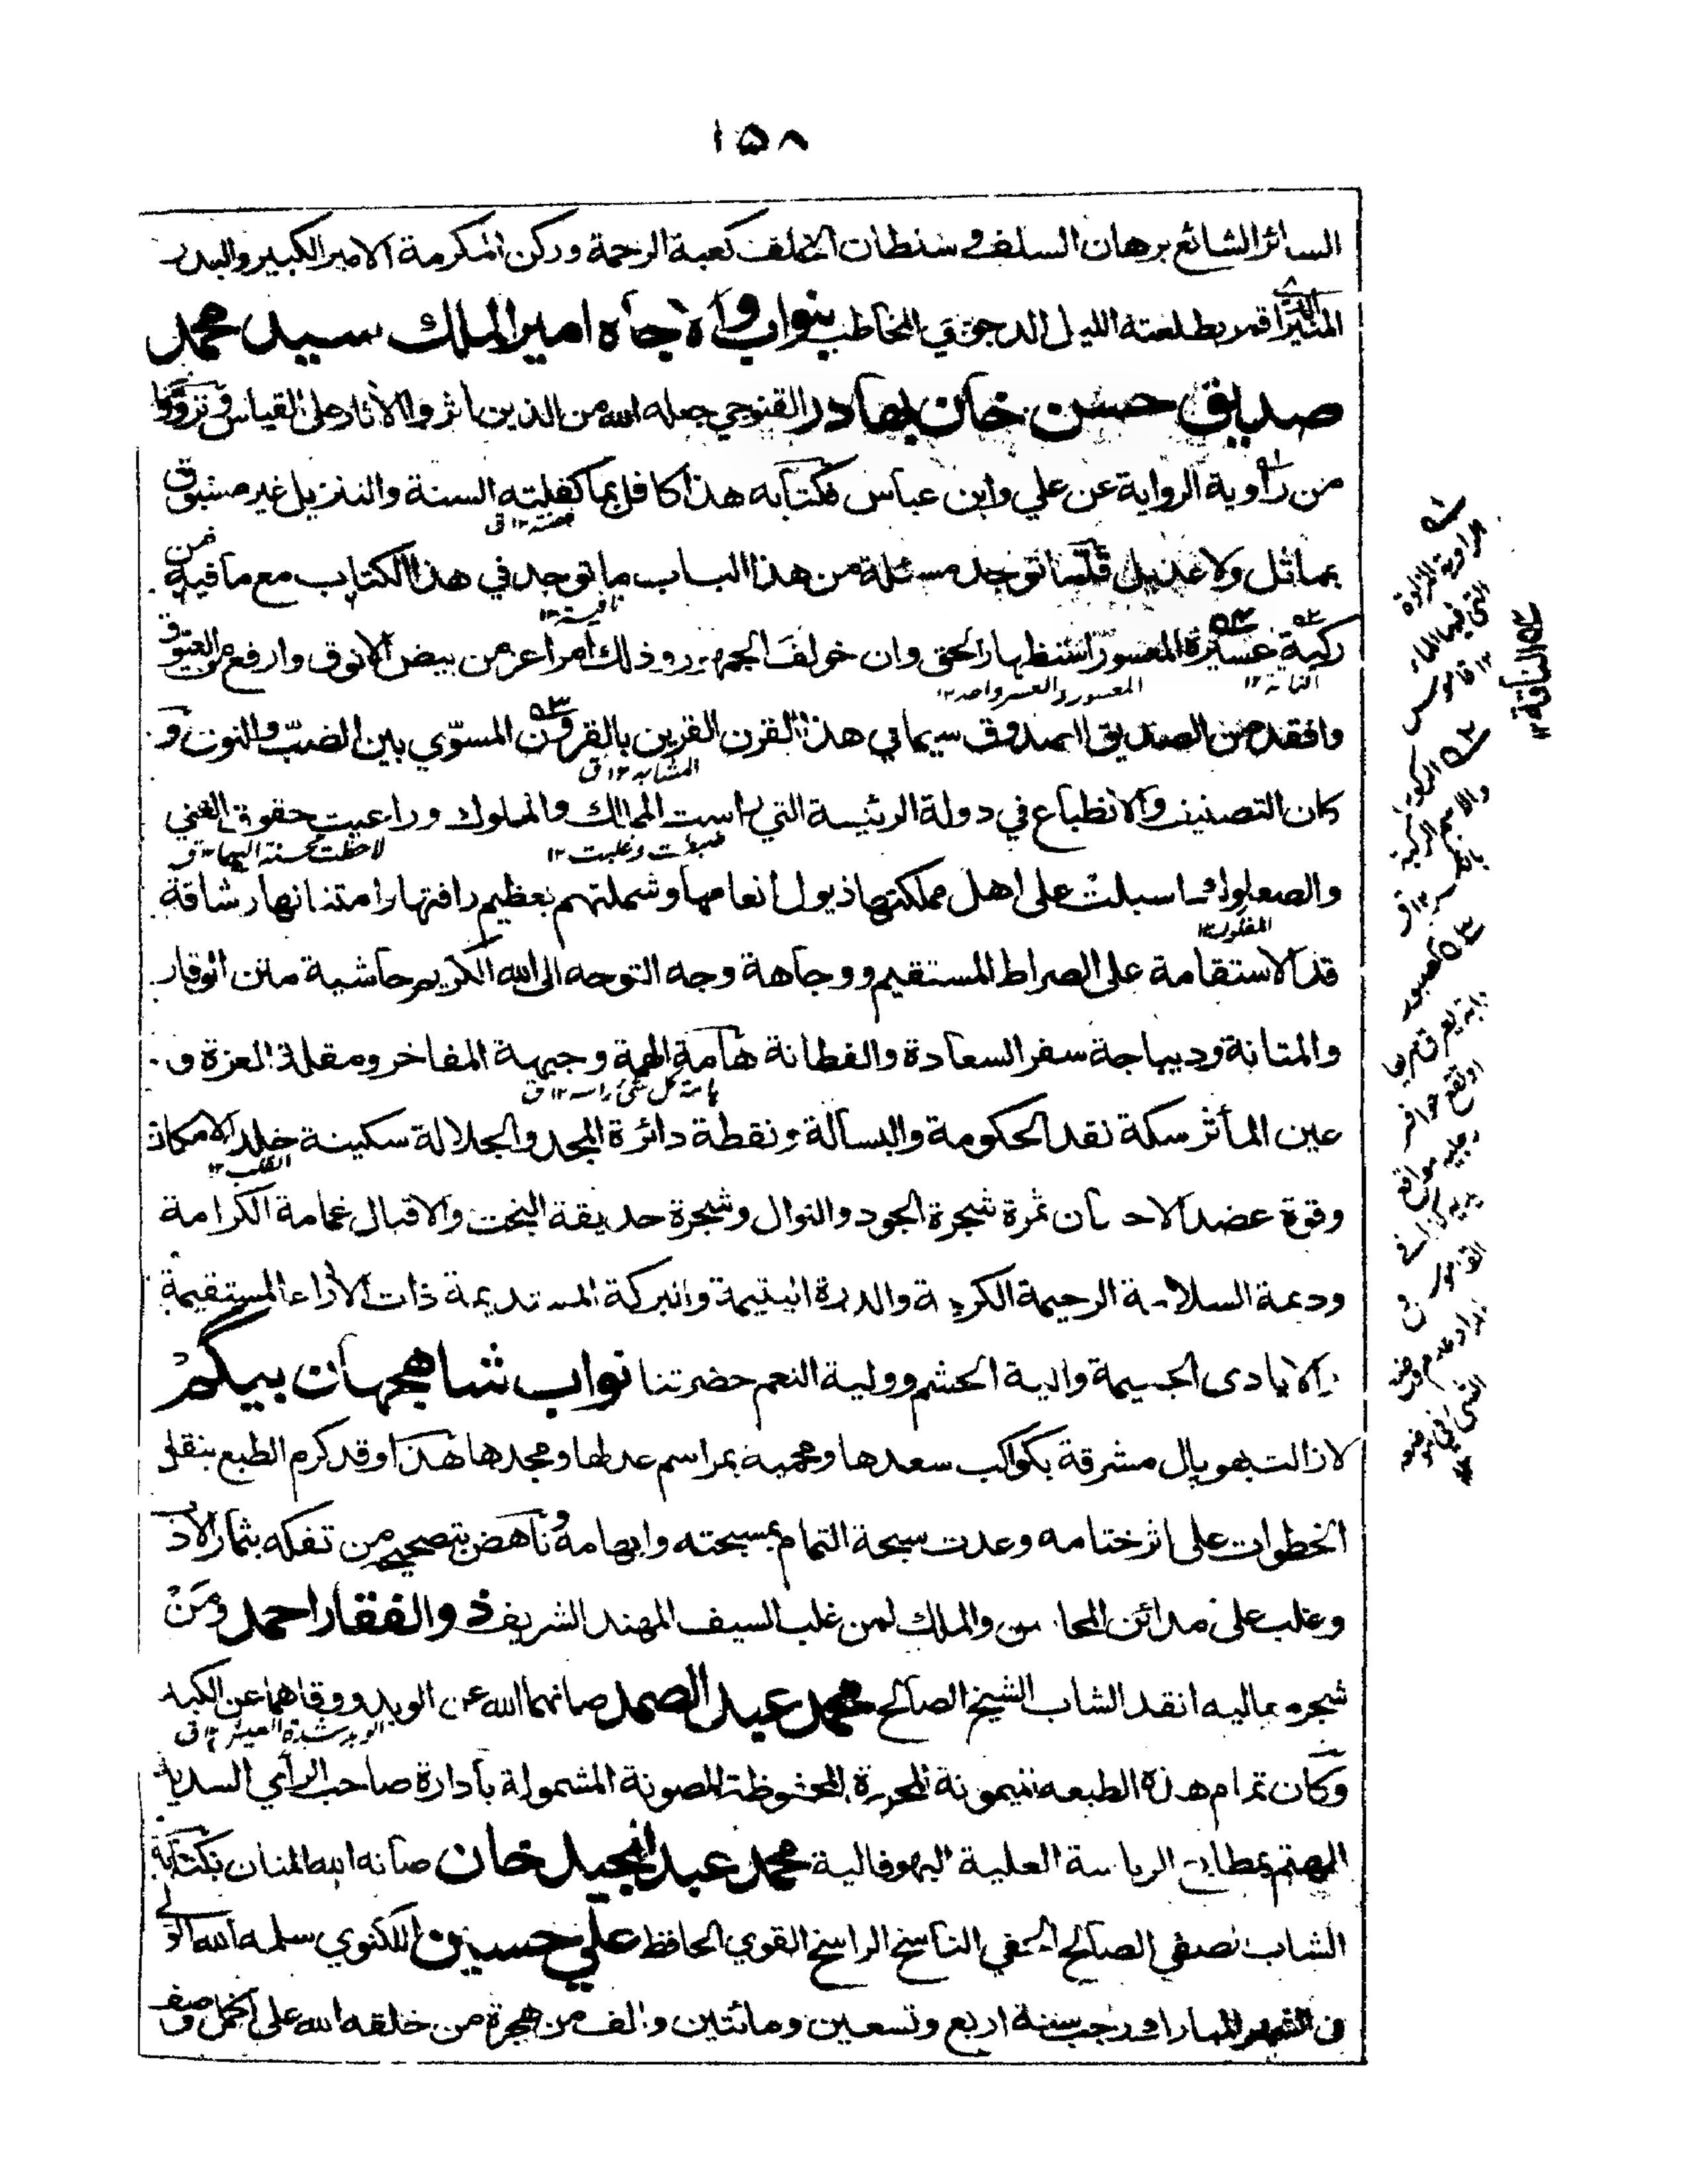 ١٥٨
السائر الشائع برهان السلف سلطان الخلف كعبة الرحمة وركن المكرمة الامير الكبير والبدر
المنير الذي اقمر بطلعته الليل الدجوجي المخاطب بنواب والاجاه امير الملك سيد محمد
صديق حسن خان بهادر القنوجي جعله الله من الذين اثروا الاثار على القياس وتزودوا
من راوية الرواية عن علي وابن عباس فكتابه هذا كافل بما كفلته السنة والتنزيل غير مسبوق
بماثل ولا عديل قلما توجد مسئلة من هذا الباب ما توجد في هذا الكتاب مع ما فيه من
ركية عسيرة المعسور استظهار الحق وان خولف الجمهور وذلك امر اعز من بيض الانوق وارفع من العيوق
وافقد من الصديق الصدوق سيما في هذا القرن القرين بالقرون المسوّي بين الضبّ والنون و
كان التصنيف والانطباع في دولة الرئيسة التي راست الممالك والملوك وراعيت حقوق الغني
والصعلوك اسبلت على اهل مملكتها ذيول انعامها وشملتهم بعظيم رافتها وامتنانها رشاقة
قد الاستقامة على الصراط المستقيم ووجاهة وجه التوجه الى الله الكريم حاشية متن الوقار
والمتانة وديباجة سفر السعادة والفطانة هامة الهمة وجبهة المفاخر ومقلة العزة و
عين المأثر سكة نقد الحكومة والبسالة ونقطة دائرة المجد والجلالة سكينة خلد الامكان
وقوة عضد الاحسان ثمرة شجرة الجود والنوال وشجرة حديقة البخت والاقبال غمامة الكرامة
ودعمة السلامة الرحيمة الكريمة والدرة اليتيمة والبركة المستديمة ذات الأراء المستقيمة
والايادى الجسيمة والية الحشم وولية النعم حضرتنا نواب شاهجهان بيگم
لازالت بهوپال مشرقة بكواكب سعدها ومحمية بمراسم عدلها ومجدها هذا وقد كرم الطبع بنقل
الخطوات على اثر ختامه وعدت سبحة التمام بمسبحته وابهامه وناهض بتصحيحه من تفكه بثمار الأدب
وغلب على مدائن المحاسن والملك لمن غلب السيف المهند الشريف ذو الفقار احمد ومن
شجره بماليه انقد الشاب الشيخ الصالح محمد عبد الصمد صانهما الله عن الوبد ووقاهما عن الكبد
وكان تمام هذه الطبعة الميمونة المحررة المحفوظة المصونة المشمولة بأدارة صاحب الرأي السديد
المهتم بمطابع الرياسة العلية البهوفالية محمد عبد المجيد خان صانه الله المنان بكتابة
الشاب الصفي الصالح الحفي الناسخ الراسخ القوي الحافظ علي حسين اللكنوي سلمه الله الولي
في الشهر المبارك رجب سنة اربع وتسعين ومائتين والف من هجرة من خلقه الله على اكمل وصف
المعسور والعسر واحد ١٢
المشابه ١٢ ق
هامة كل شئ راسه ١٢ ق
القلب ١٢
الوبد شدة العيش ١٢ ق